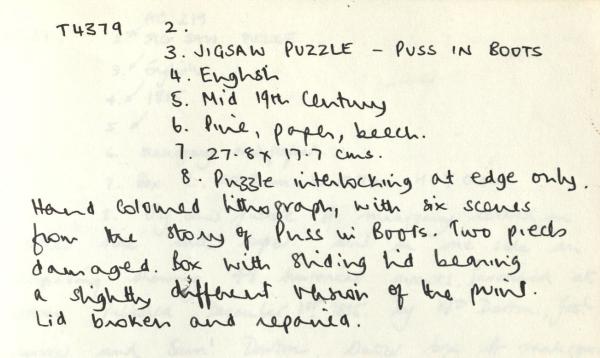 T4379 2.
3. JIGSAW PUZZLE – PUSS IN BOOTS
4. English
5. Mid 19th Century
6. Pine, paper, beech.
7. 27.8 x 17.7 cms.
8. Puzzle interlocking at edge only.
Hand coloured lithograph, with six scenes
from the story of Puss in Boots. Two pieces
damaged. Box with sliding lid bearing
a slightly different version of the print.
Lid broken and repaired.